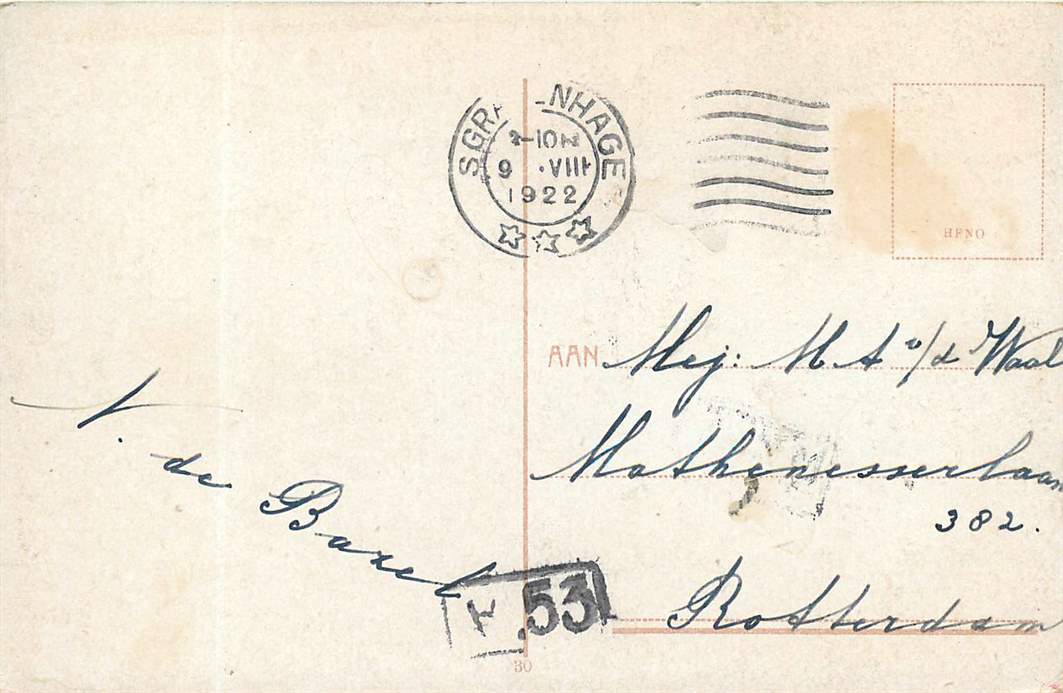 S GRA ENHAGE
10
9 VIII
1922
HFNO
AAN Mej: M A v/d Waal
Mathenesserlaan
382.
Rotterdam
V. de Baxel
53
30